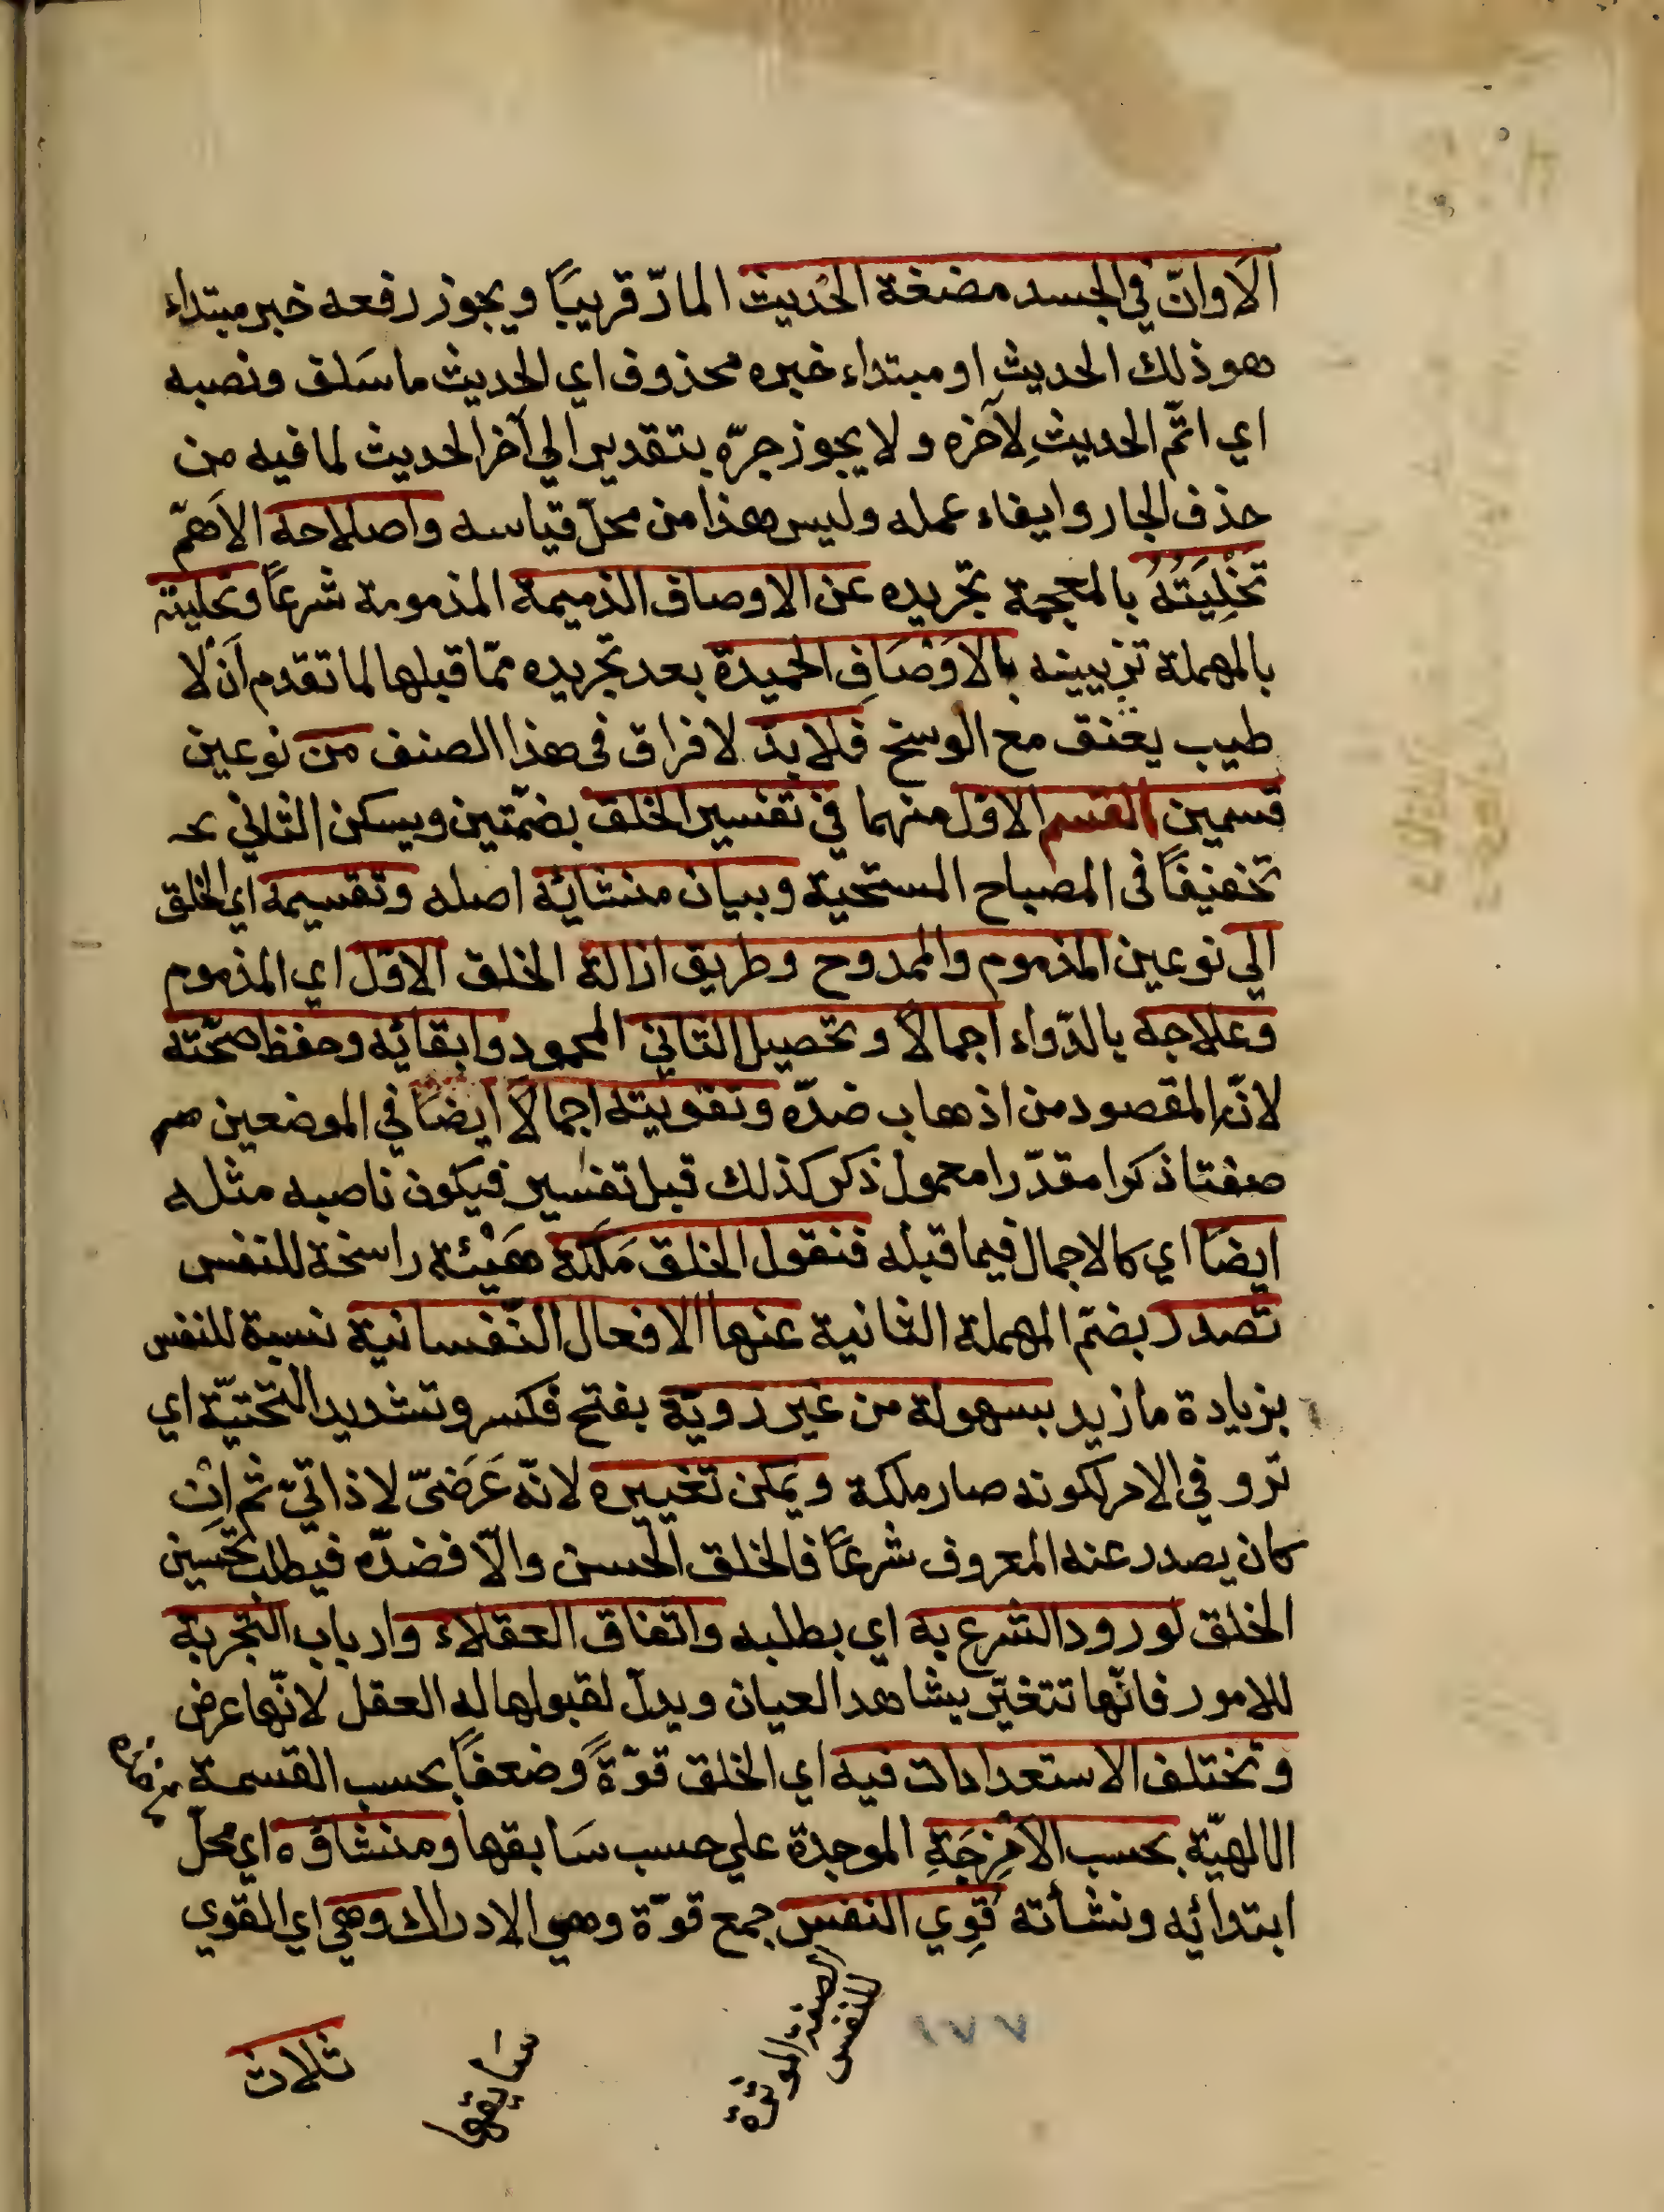 الا وانّ في الجسد مضغة الحديث المارّ قريبًا ويجوز رفعه خبر مبتداء
هو ذلك الحديث او مبتداء خبره محذوف اي الحديث ما سَلف ونصبه
اي اتمّ الحديث لآخره ولا يجوز جرّه بتقدير الي آخر الحديث لما فيه من
حذف الجار وايفاء عمله وليس هذا من محلّ قياسه واصلاحه الاَهمّ
تَخْلِيَتُهُ بالمعجمة تجريده عن الاوصاف الذميمة المذمومة شرعًا وتحليته
بالمهملة تزيينه بالاَوْصَافِ الحميدة بعد تجريده ممّا قبلها لما تقدم اَنْ لا
طيب يعنق مع الوسخ فلا بدّ لافراق فى هذا الصنف من نوعين
قسمين القسم الاوّل منهما في تفسير الخلق بضمّتين ويسكن الثاني عه
تخفيفًا فى المصباح السجية وبيان منشائه اصله وتقسيمه اي الخلق
الي نوعين المذموم والممدوح وطريق ازالة الخلق الاوّل اي المذموم
وعلاجه بالدّواء اجمالاً وتحصيل الثاني المحمود وابقائه وحفظ صحّته
لانّه المقصود من اذهاب ضدّه وتقويته اجمالاً ايضًا في الموضعين هم
صفتا ذكرا مقدّرا معمول ذكر كذلك قبل تفسير فيكون ناصبه مثله
ايضًا اي كالاجمال فيما قبله فنقول الخلق مَلَكة هَيْئة راسخة للنفس
تصدر بضمّ المهملة الثانية عنها الافعال النّفسانية نسبة للنفس
بزيادة مازيد بسهولة من غير رويّة بفتح فكسر وتشديد التحتيّة اي
تروِ في الامر لكونه صار ملكة ويمكن تغييره لانّه عَرَضىّ لا ذاتيّ ثم اِنْ
كان يصدر عنه المعروف شرعًا فالخلق الحسن والاّ فضدّه فيطلب تحسين
الخلق لورود الشرع به اي بطلبه واتفاق العقلاء وارباب التجربة
للامور فانّها تتغيّر بشاهد العيان ويدلّ لقبولها له العقل لانّها عرض
وتختلف الاستعدادات فيه اي الخلق قوّةً وضعفاً بحسب القسمة
الالهيّة بحسب الاَمْزِجَةِ الموجدة علي حسب سَابقها ومنشاؤه اي محلّ
ابتدائه ونشأته قوي النفس جمع قوّة وهي الادراك وهي اي القوي
الصفة المؤثرة
للنفس
١٧٧
سَابقها
ثلاث